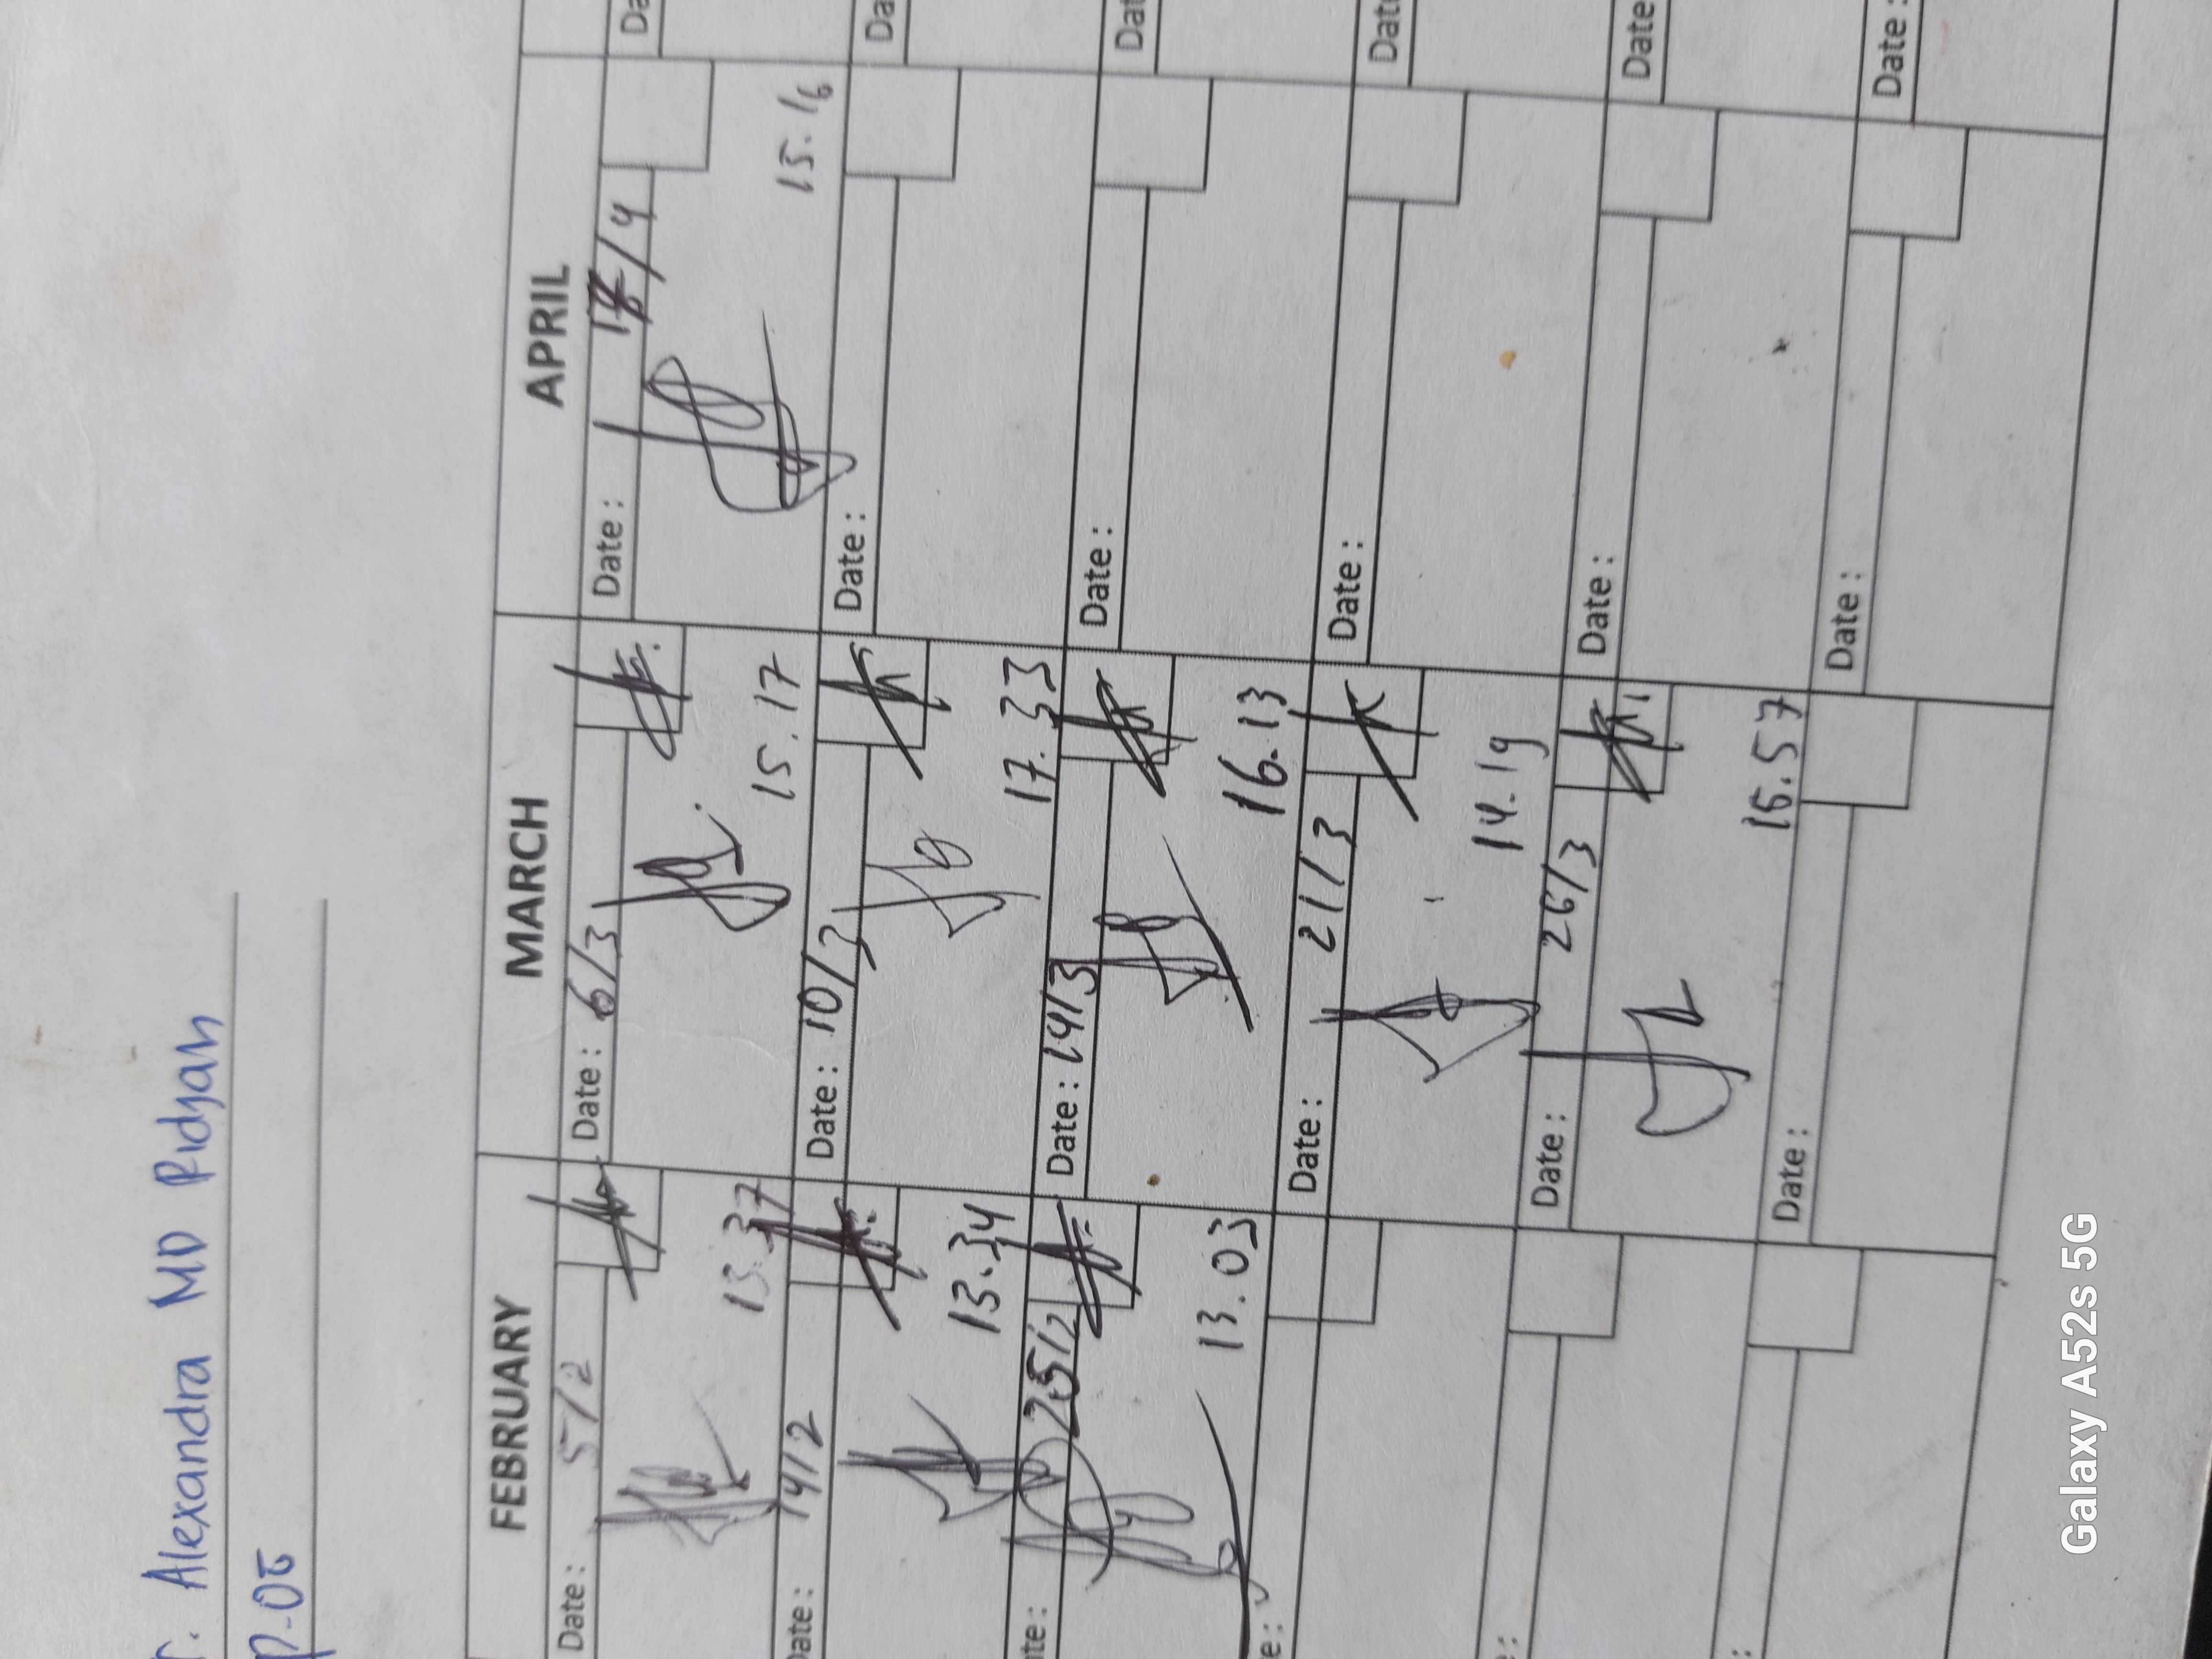 r. Alexandra MD Pidyan
P-05
FEBRUARY MARCH APRIL
Date: 5/2 Date: 6/3 Date: /4 Da
13.37 15.17 15.16
Date: 14/2 Date: 10/3 Date: Da
13.34 17.33
te: 25/2 Date: 14/3 Date: Dat
13.03 16.13
e: Date: 21/3 Date: Dat
14.19
: Date: 26/3 Date: Date
16.57
: Date: Date: Date:
Galaxy A52s 5G